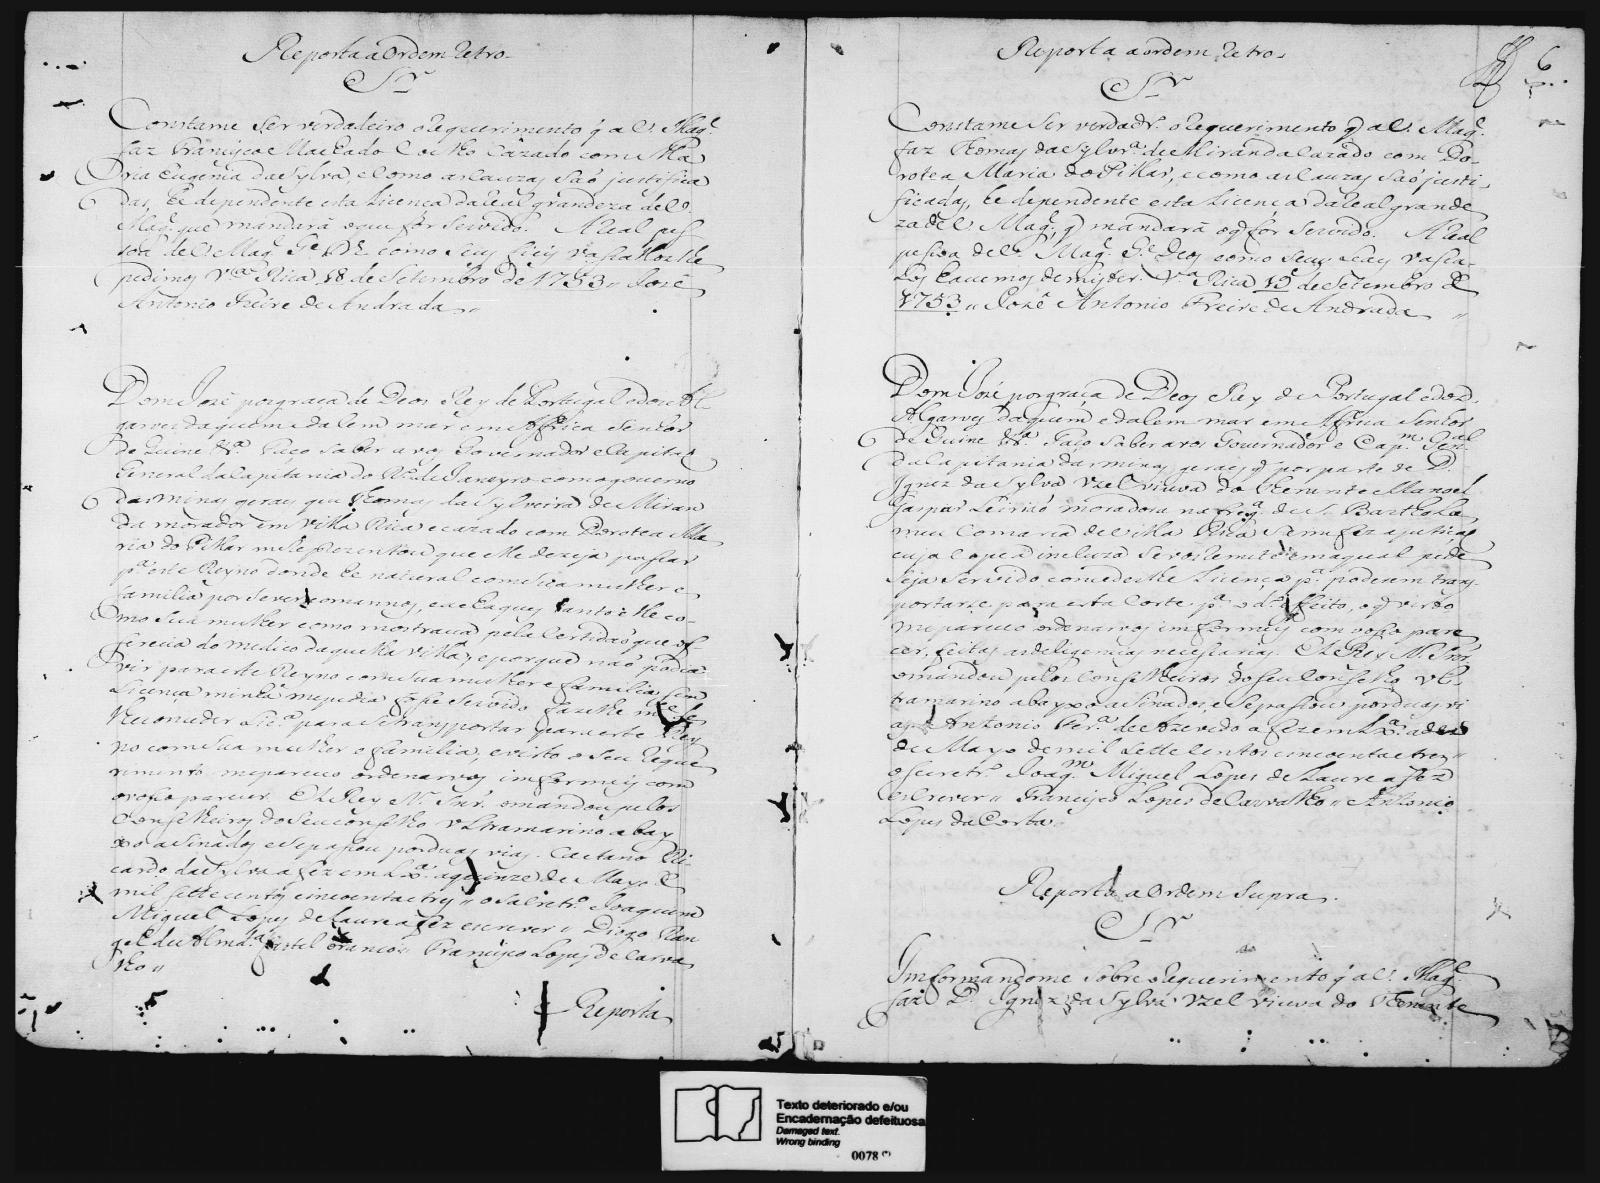 Reporta á Ordem retro.
Sr.
Constame Ser verdadeiro o requerimento q a V. Mag.e
faz Francisco Machado Coelho Cazado com Ma
ria Eugenia da Sylva, e como as cauzas saó justifica
das, he dependente esta Licença da Real grandeza de V.
Mag.e que mandará o que for Servido. A Real pes
soa de V. Mag.e G.e Ds. como Seus fieis vassalos lhe
pedimos V.a Rica 18 de Setembro de 1753 // Jozê
Antonio Freire de Andrada //
Dom Jozê por graça de Deos Rey de Portugal e dos Al
garves daquem e dalem mar em Affrica Senhor
de Guine &.a Faço saber a vos Governador e Capitaó
General da Capitania do R.o de Janeyro com o governo
das minas geraes que Thomas da Sylveira de Miran
da morador em villa Rica e cazado com Dorotea Ma
ria do Pilar me reprezentou que elle dezeja passar
p.a este Reyno donde he natural com sua mulher e
familia por se ver com annos, e achaques tanto elle co-
mo sua mulher como mostrava pela Certidaó que of
ferecia do medico daquella villa, e porque naó podia
vir para este Reyno com sua mulher e familia sem
Licença minha me pedia fosse Servido fazerlhe m.ce de
lhe conceder Lic.a para se transportar para este Rey
no com sua mulher e familia, e visto o seu reque
rimento me pareceo ordenarvos informeis com
o vosso parecer. El Rey N. Snr. o mandou pelos
Conselheiros do Seu conselho Ultramarino abay
xo asinados e se passou por duas vias. Caetano Ri-
cardo da Sylva a fez em Lx.a a quinze de Mayo de
mil sette centos cincoenta e tres // o Secretr.o Joaquim
Miguel Lopes de Laure a fez escrever // Diogo Ran
gel de Alm.da Castel branco // Francisco Lopes de Carva
lho //
Reporta
6
Reporta a ordem retro.
Sr.
Constame Ser verdadr.o o requerimento q a V. Mag.e
faz Thomas da Sylvr.a de Miranda Cazado com Do-
rotea Maria do Pilar, e como as cauzas saó justi
ficadas, he dependente esta Licença da Real grande
za de V. Mag.e, q mandará o q for Servido. A Real
pessoa de V. Mag.e G.e Deos como Seus fieis vassa-
los havemos de mister. V.a Rica 19 de Setembro de
1753 // Jozê Antonio Freire de Andrada //
Dom Jozê por graça de Deos Rey de Portugal e dos
Algarves daquem e dalem mar em Affrica Senhor
de Guine &.a Faço Saber a vos Governador e Cap.m Gen.al
da Capitania das minas geraes q por parte de D.
Ignez da Sylva Uzel viuva do thenente Manoel
Gaspar moradora na freg.a de S. Bartholo
meu Comarca de villa Rica Se me fez a peticaó
cuja copea incluza Se vos remete na qual pede
seja servido concederlhe Licença p.a poderem trans
portarse para esta Corte p.a o d.o effeito, o q visto
me pareceo ordenarvos informeis com vosso pare
cer, feitas as deligencias necessarias. El Rey N. Snr.
o mandou pelos conselheiros do seu Conselho Ul-
tramarino abayxo asinados, e se passou por duas vi
as Antonio Fer.a de Azevedo a fez em Lx.a a dez
de Mayo de mil sette centos cincoenta e tres //
o Secretr.o Joaq.m Miguel Lopes de Laure a fez
escrever // Francisco Lopes de Carvalho // Antonio
Lopes da Costa.
Reporta a Ordem Supra.
Sr.
Imformandome Sobre o requerimento q a V. Mag.e
faz D. Ignez da Sylva Uzel viuva do Thenente
Texto deteriorado e/ou
Encadernação defeituosa
Damaged text.
Wrong binding
0078 (*)